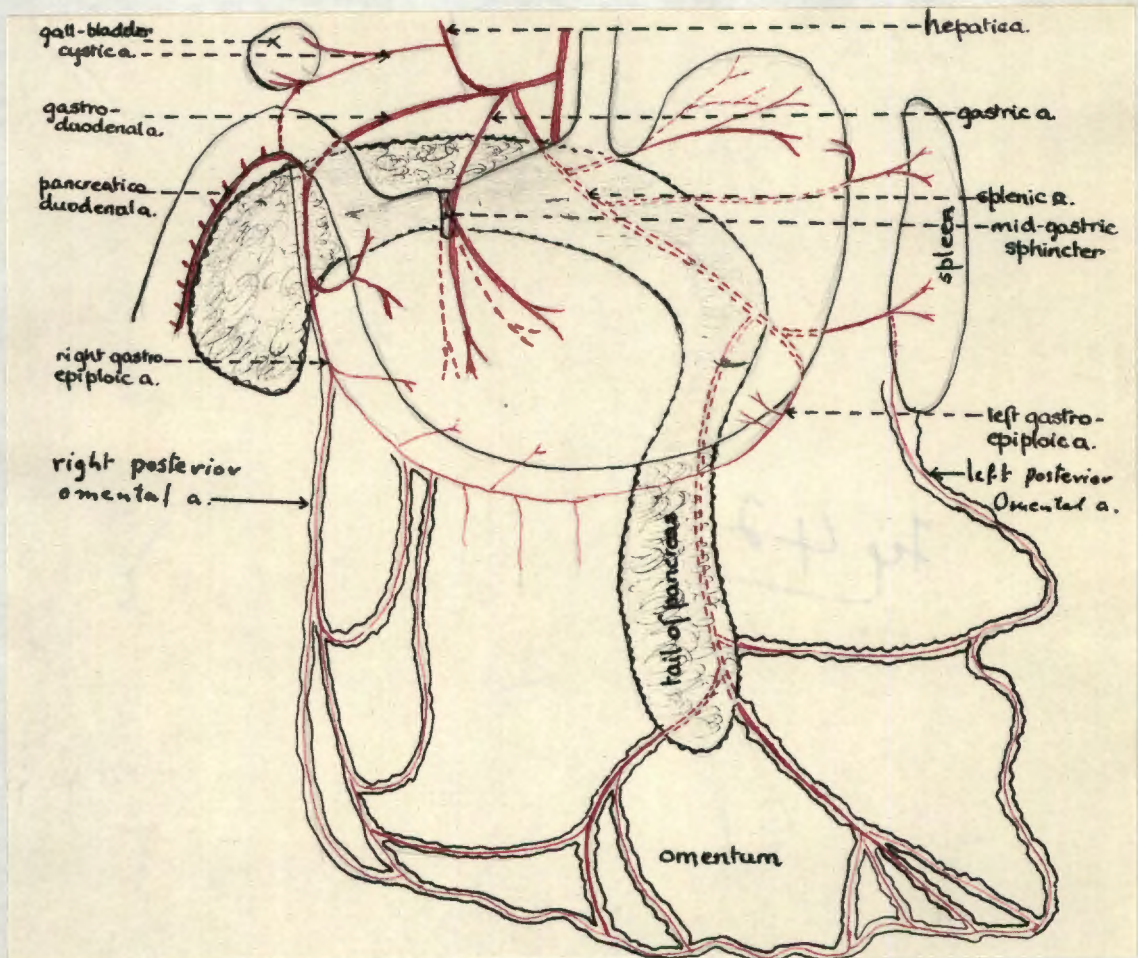 gall-bladder
cystic a.
gastro-
duodenal a.
pancreatico
duodenal a.
right gastro
epiploic a.
right posterior
omental a.
hepatic a.
gastric a.
splenic a.
mid-gastric
sphincter
spleen
left gastro-
epiploic a.
left posterior
Omental a.
tail of pancreas
omentum